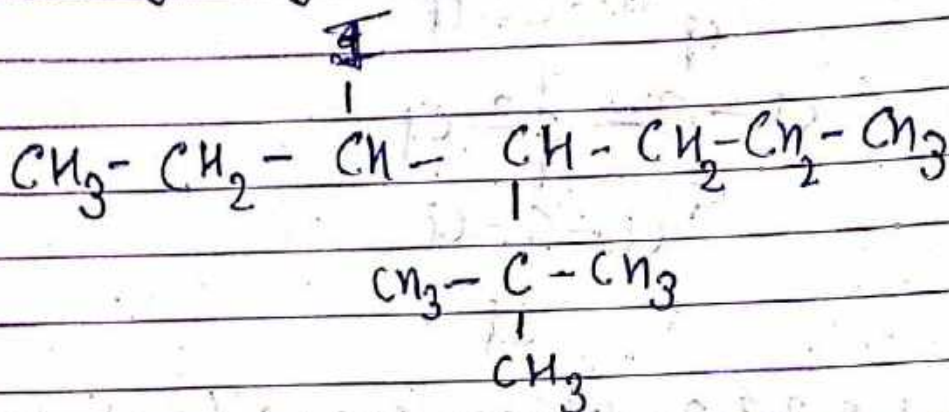 I
|
CH3- CH2 - CH - CH - CH2-CH2- CH3
|
CH3- C - CH3
|
CH3